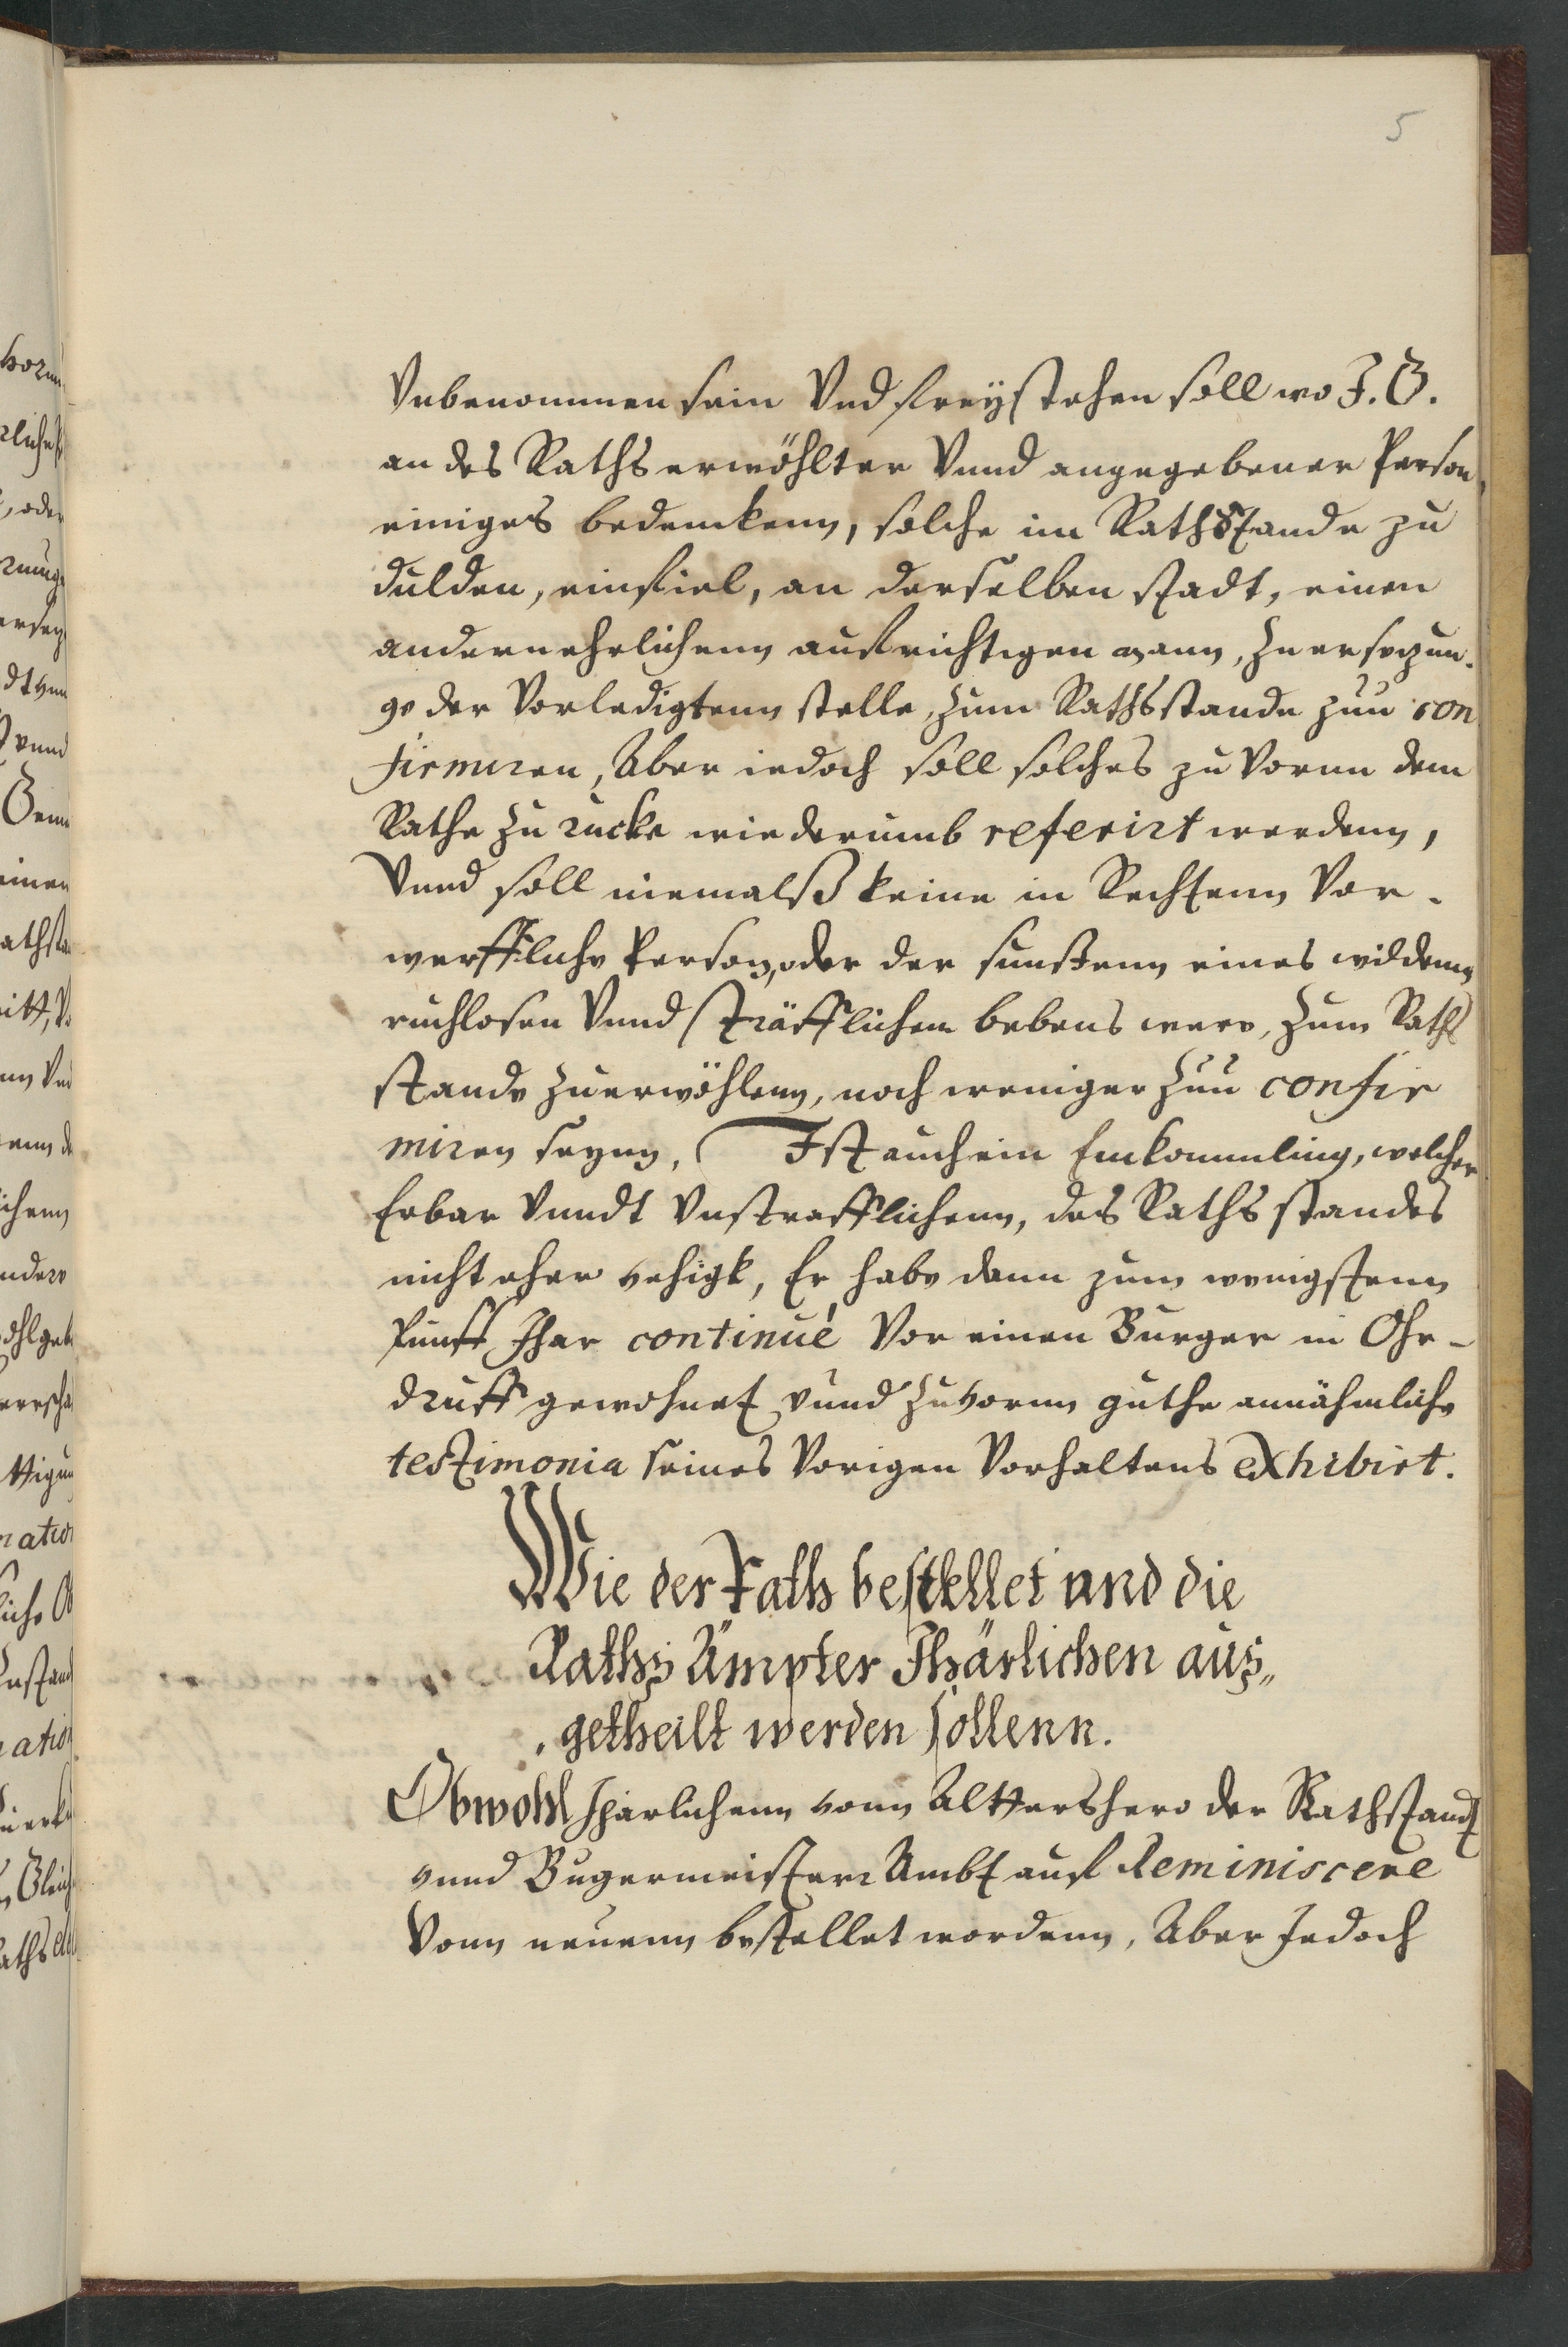 5
Vnbenommen sein Vnd freÿstehen soll wo J. G.
an des Raths erwöhlter Vnnd angegebener Person,
einiges bedenckenn, solche im Rathstande zu
dulden, einfiel, an derselben stadt, einen
andern ehrlichenn aufrichtigen mann, Zu ersezun-
ge der Vorledigtenn stelle, zum Rathsstande zuu con
firmiren, Aber iedoch soll solches zu Vornn dem
Rathe Zu rucke wiederumb referirt werdenn,
Vnnd soll niemalß keine in Rechtenn Vor-
werffliche Person, oder der sunstenn eines wildenn
ruchlosen Vnnd sträfflichem lebens were, Zum Raths
stande Zu erwöhlenn, noch weniger Zuu confir
miren seynn, Ist auch ein Einkommling, welcher
Erbar Vnndt Vnstrafflichenn, des Raths standes
nicht eher vehigk, Er habe dann zum wenigstenn
funff Jhar continué Vor einen Burger in Ohr-
druff gewohnet vnnd Zuvornn guthe annähmliche
testimonia seines Vorigen Vorhaltens exhibirt.
Wie der Rath bestellet und die
Raths Ämpter Jhärlichen aus„
getheilt werden sollenn.
Obwohl Jharlichenn vonn Alttershero der Rathstandt
vnnd Bugermeister Ambt auf Reminiscere
Vonn neuenn bestellet wordenn, Aber Jedoch